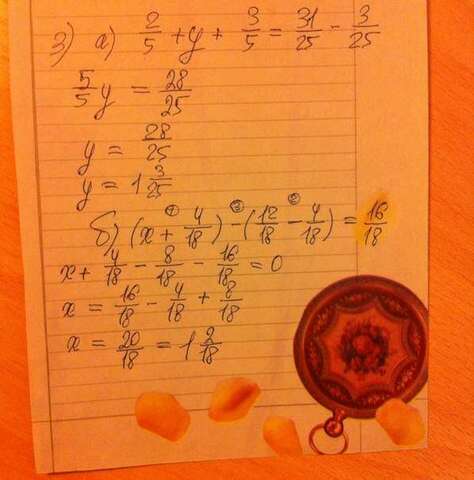 3) а) 2/5 + y + 3/5 = 31/25 - 3/25
5/5 y = 28/25
y = 28/25
y = 1 3/25
б) (x + 4/18) - (12/18 - 4/18) = 16/18
① ③ ②
x + 4/18 - 8/18 - 16/18 = 0
x = 16/18 - 4/18 + 8/18
x = 20/18 = 1 2/18